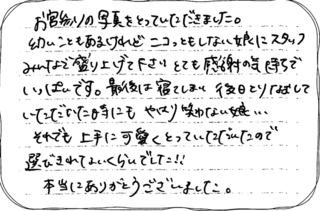 お宮参りの写真をとっていただきました。
幼いこともあるけれど ニコっともしない娘にスタッフ
みんなで盛り上げて下さい とても感謝の気持ちで
いっぱいです。最後は寝てしまい 後日とりなおして
いただいた時にも やはり笑わない娘…
それでも上手に可愛くとっていただいたので
選びきれないくらいでした!!
本当にありがとうございました。